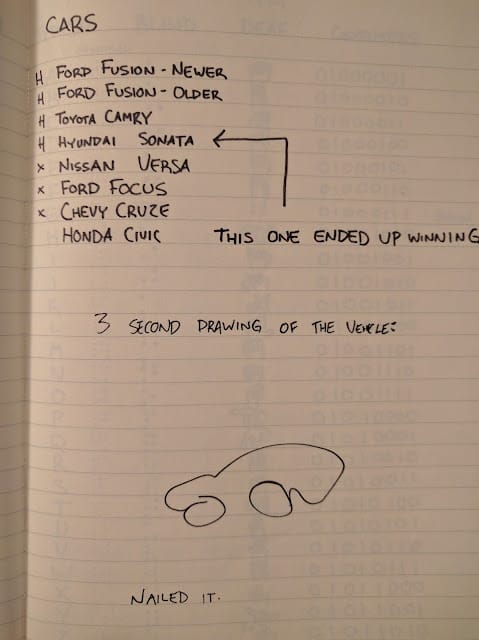 CARS
H FORD FUSION - NEWER
H FORD FUSION - OLDER
H TOYOTA CAMRY
H HYUNDAI SONATA
x NISSAN VERSA
x FORD FOCUS
x CHEVY CRUZE
HONDA CIVIC
THIS ONE ENDED UP WINNING
3 SECOND DRAWING OF THE VEHICLE:
NAILED IT.